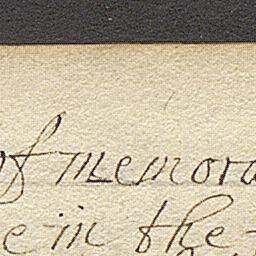 of memora
e in the